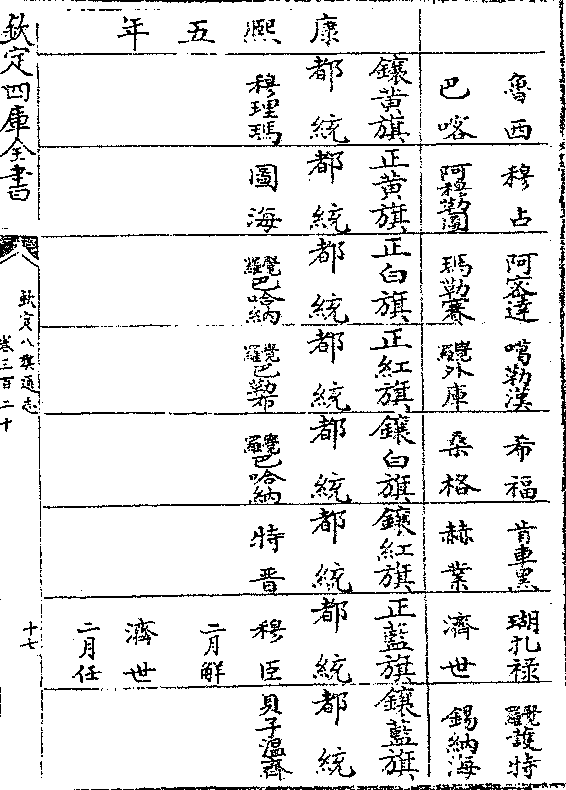 魯西 穆占 阿密達 噶勒漢 希福 肯車黑 瑚扎祿 覺羅護特
巴喀 阿穆勒圖 瑪勒賽 覺羅外庫 桑格 赫業 濟世 錫納海
康熙五年
鑲黃旗 正黃旗 正白旗 正紅旗 鑲白旗 鑲紅旗 正藍旗 鑲藍旗
都統 都統 都統 都統 都統 都統 都統 都統
穆理瑪 圖海 覺羅巴哈納 覺羅巴勒 覺羅巴哈納 特晋 穆臣 貝子溫齊
二月解
濟世
二月任
欽定四庫全書
欽定八旗通志
卷三百二十
十七